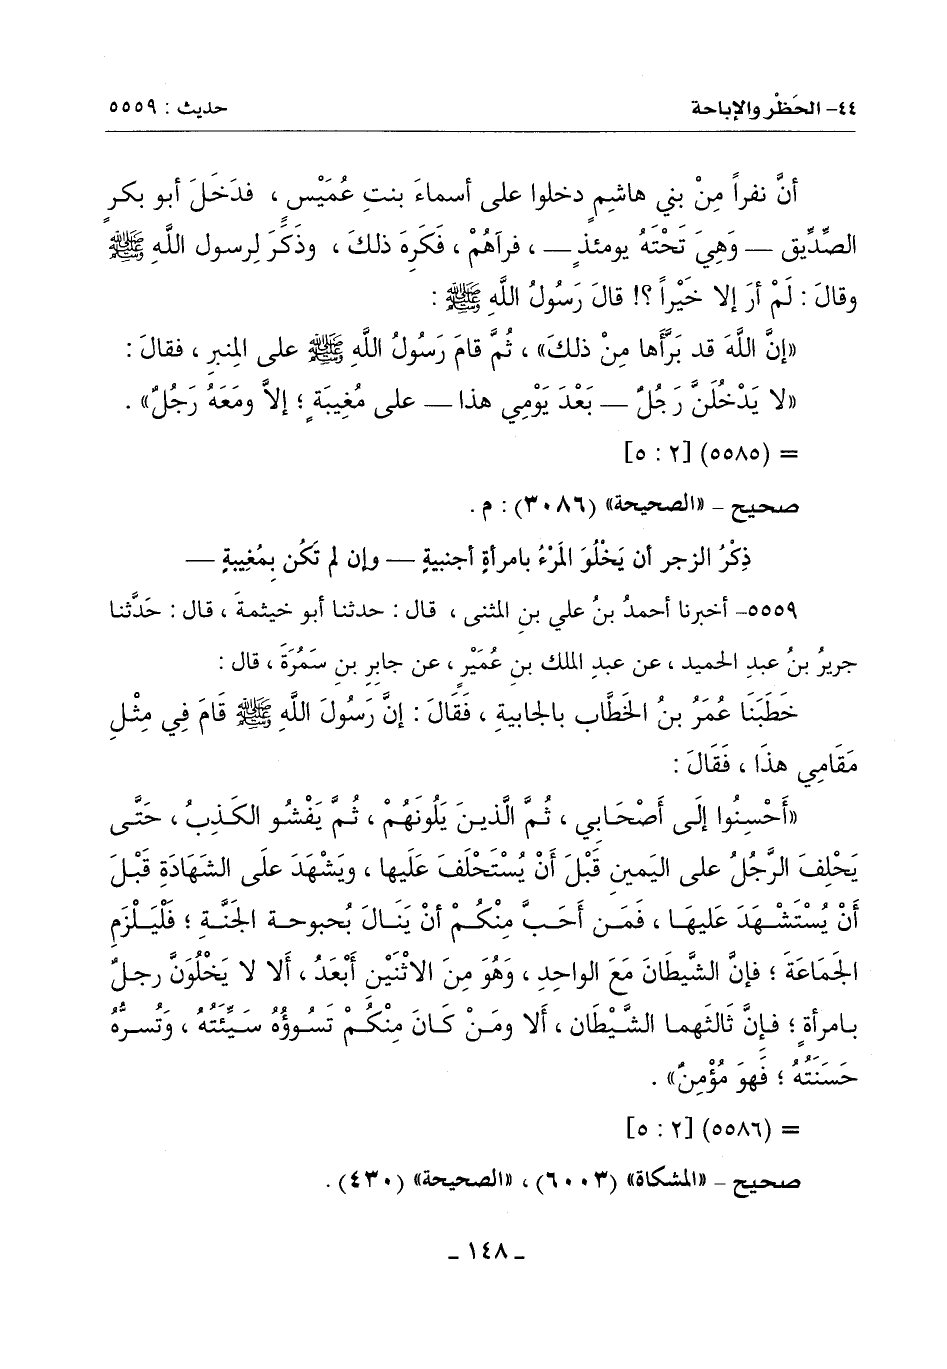 ٤٤- الحَظْر والإباحة حديث : ٥٥٥٩
أنَّ نفراً مِنْ بني هاشمٍ دخلوا على أسماءَ بنتِ عُمَيْسٍ ، فدَخَلَ أبو بكرٍ
الصِّدِّيق — وَهِيَ تَحْتَهُ يومئذٍ — ، فرآهُمْ ، فَكَرِهَ ذلكَ ، وذَكَرَ لِرسول اللَّهِ ﷺ
وقالَ : لَمْ أرَ إلا خَيْراً ؟! قالَ رَسُولُ اللَّهِ ﷺ :
«إنَّ اللَّهَ قد بَرَّأها مِنْ ذلكَ» ، ثُمَّ قامَ رَسُولُ اللَّهِ ﷺ على المِنبرِ ، فقالَ :
«لا يَدْخُلَنَّ رَجُلٌ — بَعْدَ يَوْمِي هذا — على مُغِيبَةٍ ؛ إلاَّ ومَعَهُ رَجُلٌ» .
= (٥٥٨٥) [٢ : ٥]
صحيح - «الصحيحة» (٣٠٨٦) : م .
ذِكْرُ الزجر أن يَخْلُوَ المَرْءُ بامرأةٍ أجنبيةٍ — وإن لم تَكُن بِمُغِيبةٍ —
٥٥٥٩- أخبرنا أحمدُ بنُ علي بنِ المثنى ، قال : حدثنا أبو خيثمةَ ، قال : حَدَّثنا
جريرُ بنُ عبدِ الحميد ، عن عبدِ الملك بنِ عُمَيْرٍ ، عن جابرِ بنِ سَمُرَةَ ، قال :
خَطَبَنَا عُمَرُ بنُ الخَطَّاب بالجابيةِ ، فَقَالَ : إنَّ رَسُولَ اللَّهِ ﷺ قَامَ فِي مِثْلِ
مَقَامِي هذَا ، فَقَالَ :
«أَحْسِنُوا إلَى أَصْحَابي ، ثُمَّ الَّذينَ يَلُونَهُمْ ، ثُمَّ يَفْشُو الكَذِبُ ، حَتَّى
يَحْلِفَ الرَّجُلُ على اليَمينِ قَبْلَ أَنْ يُسْتَحْلَفَ عَلَيها ، ويَشْهَدَ علَى الشَهَادَةِ قَبْلَ
أَنْ يُسْتَشْهَدَ عَلَيهَا ، فَمَن أَحَبَّ مِنْكُمْ أنْ يَنَالَ بُحبوحة الجَنَّةِ ؛ فَلْيَلْزَمِ
الجَمَاعَةَ ؛ فإنَّ الشَّيطَانَ مَعَ الواحِدِ ، وَهُوَ مِنَ الاثْنَيْنِ أبْعَدُ ، ألا لا يَخْلُوَنَّ رجلٌ
بامرأةٍ ؛ فإنَّ ثالثَهما الشَّيْطَان ، أَلا ومَنْ كَانَ مِنكُمْ تَسُوؤُهُ سَيِّئَتُهُ ، وَتَسرُّهُ
حَسَنَتُهُ ؛ فَهوَ مُؤْمِنٌ» .
= (٥٥٨٦) [٢ : ٥]
صحيح - «المشكاة» (٦٠٠٣) ، «الصحيحة» (٤٣٠) .
- ١٤٨ -